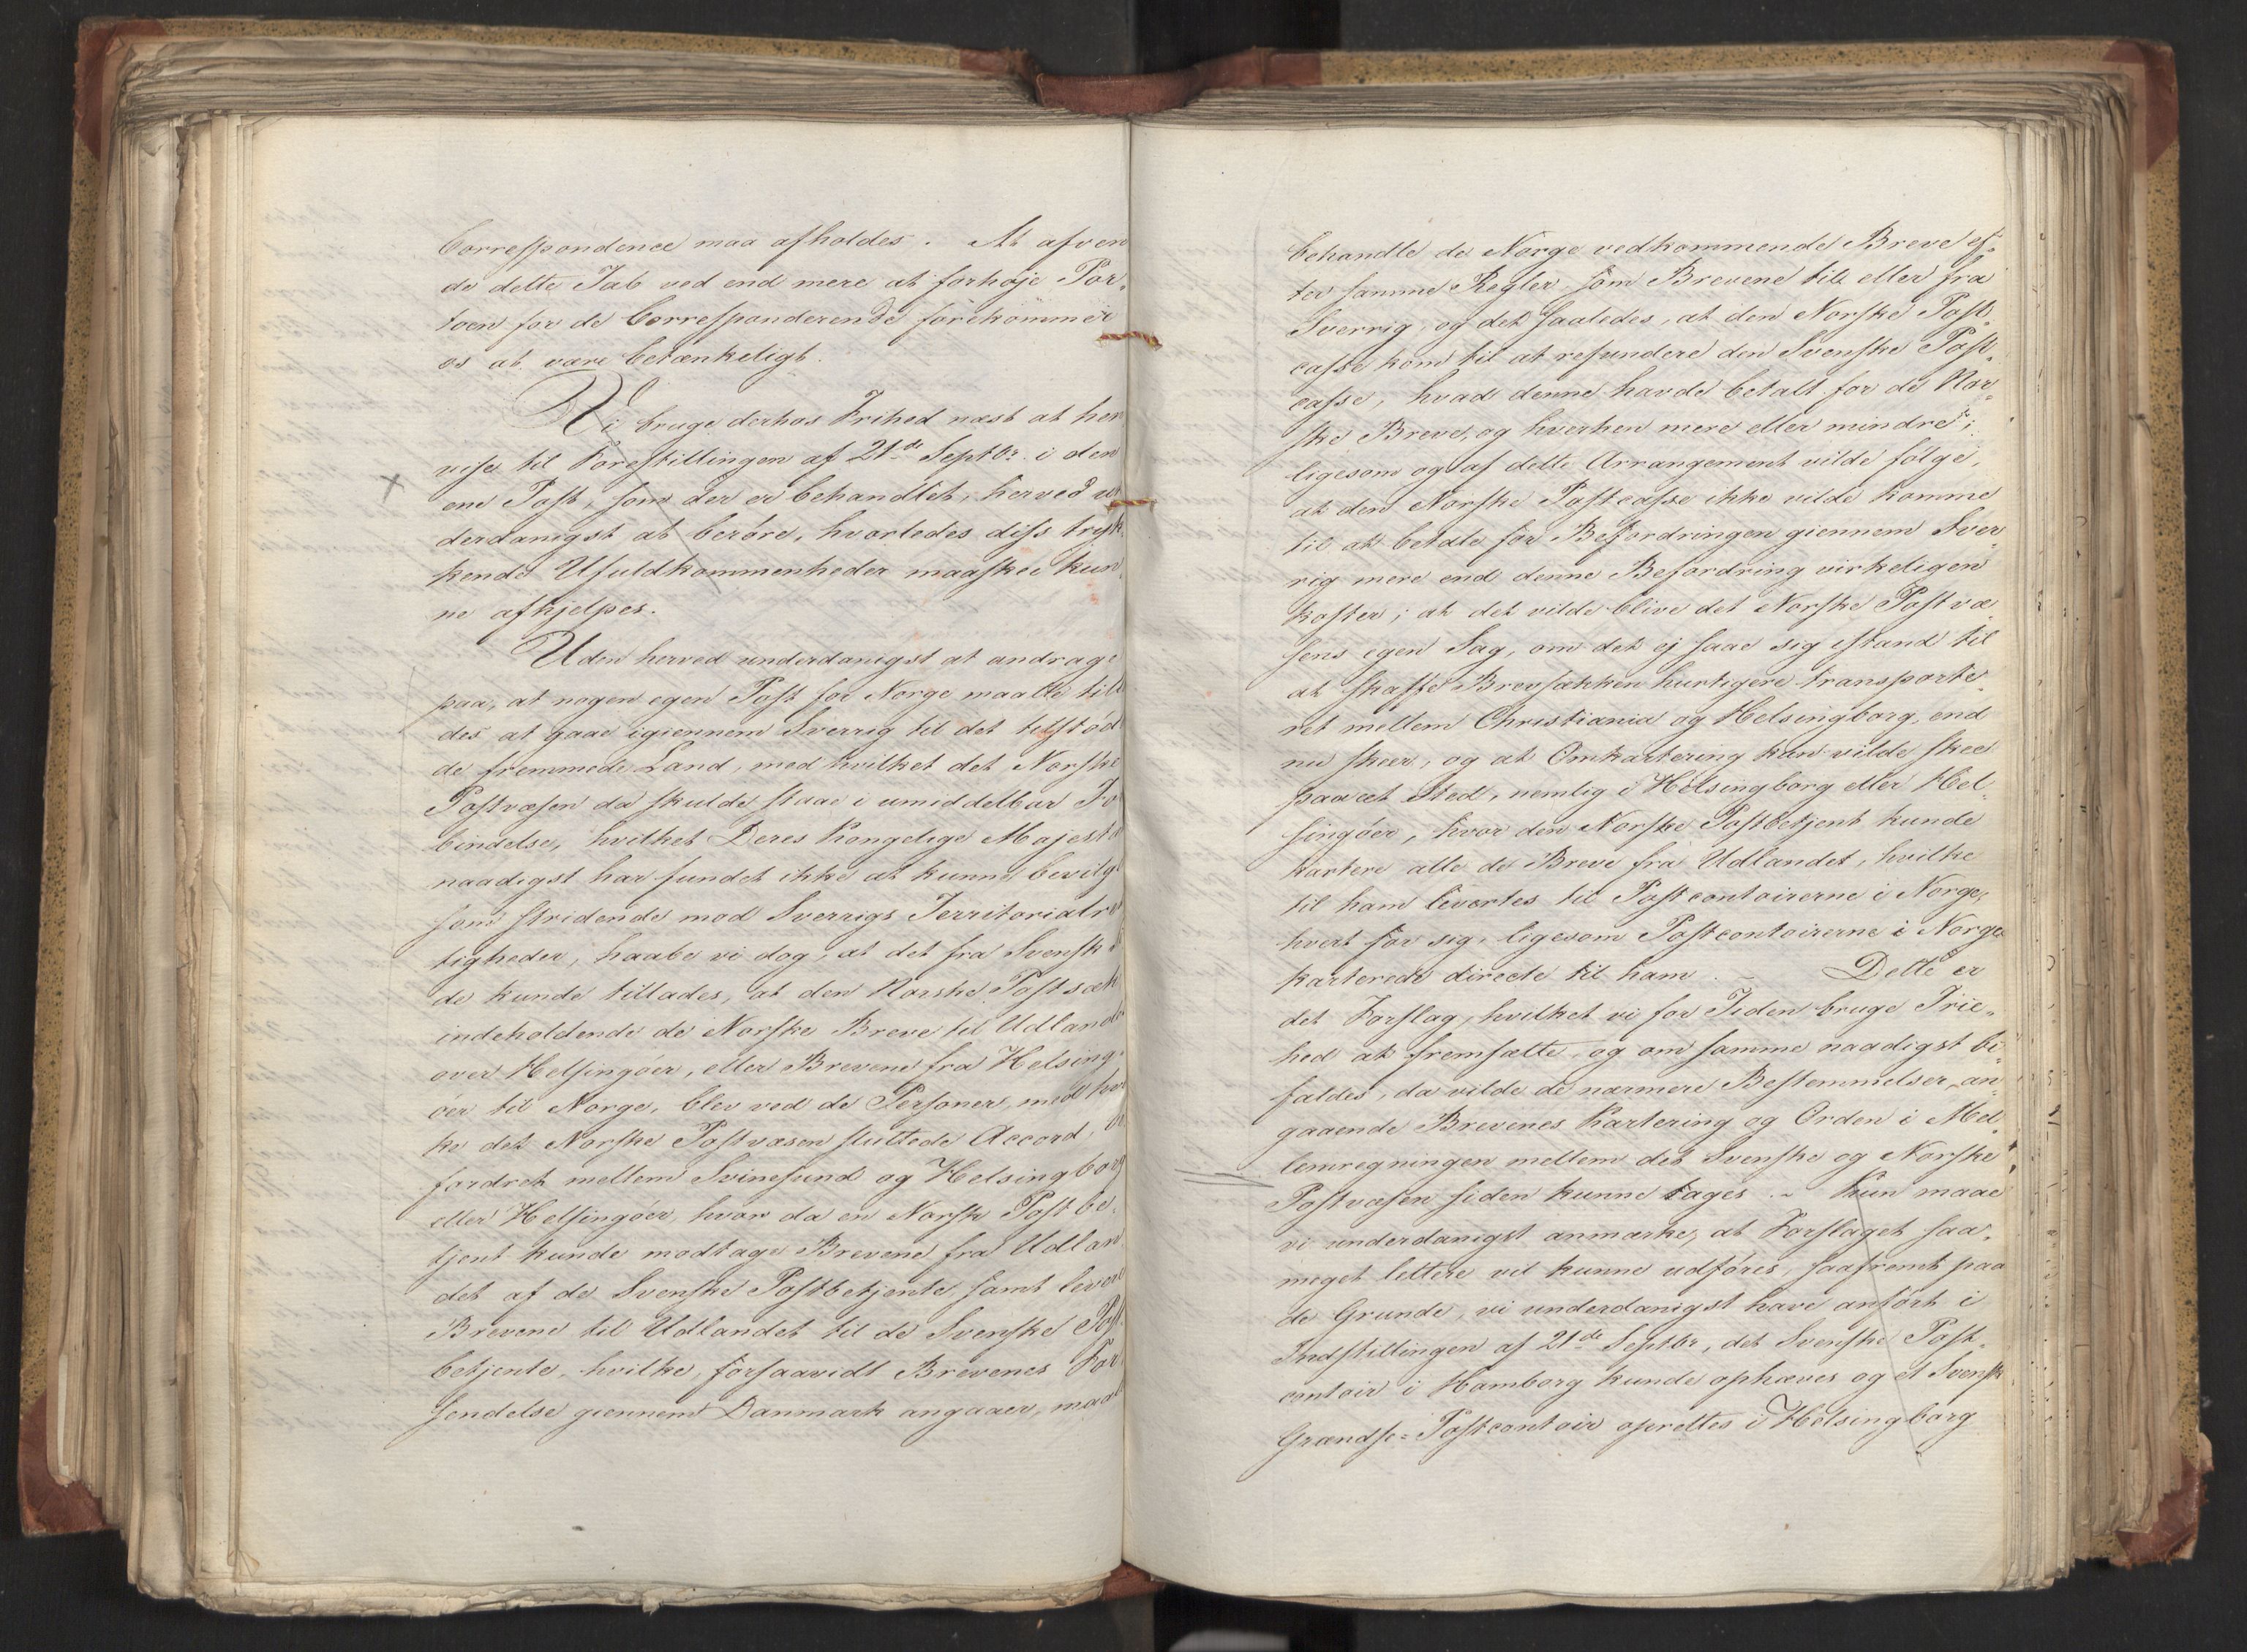 Correspondence maa afholdes. At afven
de dette Tab ved end mere at forhøje Por-
toen for de Corresponderende forekommer
os at være betænkeligt.
Vi bruge derhos Frihed næst at hen
vise til Forestillingen af 21de Septbr. i den
ene Post, som der er behandlet, herved un
derdanigst at berøre, hvorledes diss tryk-
kende Ufuldkommenheder maaskee kun-
ne afhjelpes.
Uden herved underdanigst at andrage
paa, at nogen egen Post for Norge maatte tilla
des at gaae igiennem Sverrig til det tilstød
de fremmede Land, med hvilket det Norske
Postvæsen da skulde staae i umiddelbar For
bindelse, hvilket Deres Kongelige Majestæt
naadigst har fundet ikke at kunne bevilge
som stridende mod Sverrigs Territorialret
tigheder, haabe vi dog, at det fra Svensk Si
de kunde tillades, at den Norske Postsæk
indeholdende de Norske Breve til Udlandet
over Helsingöer, eller Brevene fra Helsing-
öer til Norge, blev ved de Personer, med hvil
ke det Norske Postvæsen sluttede Accord, be
fordret mellem Svinesund og Helsingborg
eller Helsingöer, hvor da en Norsk Postbe-
tjent kunde modtage Brevene fra Udlan
det af de Svenske Postbetjente samt levere
Brevene til Udlandet til de Svenske Post-
betjente, hvilke, forsaavidt Brevenes For
sendelse giennem Danmark angaaer, maatte
behandle de Norge vedkommende Breve ef-
ter samme Regler som Brevene til eller fra
Sverrig, og det saaledes, at den Norske Post
casse kom til at refundere den Svenske Post-
casse, hvad denne havde betalt for de Nor-
ske Breve, og hverken mere eller mindre;
ligesom og af dette Arrangement vilde følge,
at den Norske Postcasse ikke vilde komme
til at betale for Befordringen giennem Sver
rig mere end denne Befordring virkeligen
koster; at det vilde blive det Norske Postvæ
sens egen Sag, om det ej saae sig istand til
at skaffe Brevsækken hurtigere transporte-
ret mellem Christiania og Helsingborg, end
nu skeer, og at Omkartering kun vilde skee
paa et Sted, nemlig i Helsingborg eller Hel-
singöer, hvor den Norske Postbetjent kunde
kartere alle de Breve fra Udlandet, hvilke
til ham levertes til Postcontoirerne i Norge,
hvert for sig, ligesom Postcontoirerne i Norge
karterede directe til ham. – Dette er
det Forslag, hvilket vi for Tiden bruge Frie-
hed at fremsætte, og om samme naadigst bi-
faldes, da vilde de nærmere Bestemmelser an
gaaende Brevenes Kartering og Orden i Mel-
lemregningen mellem det Svenske og Norske
Postvæsen siden kunne tages. – Kun maae
vi underdanigst anmærke, at Forslaget saa-
meget lettere vil kunne udföres, saafremt paa
de Grunde, vi underdanigst have anfört i
Indstillingen af 21de Septbr, det Svenske Post-
contoir i Hamborg kunde ophæves og et Svensk
Grændse-Postcontoir oprettes i Helsingborg